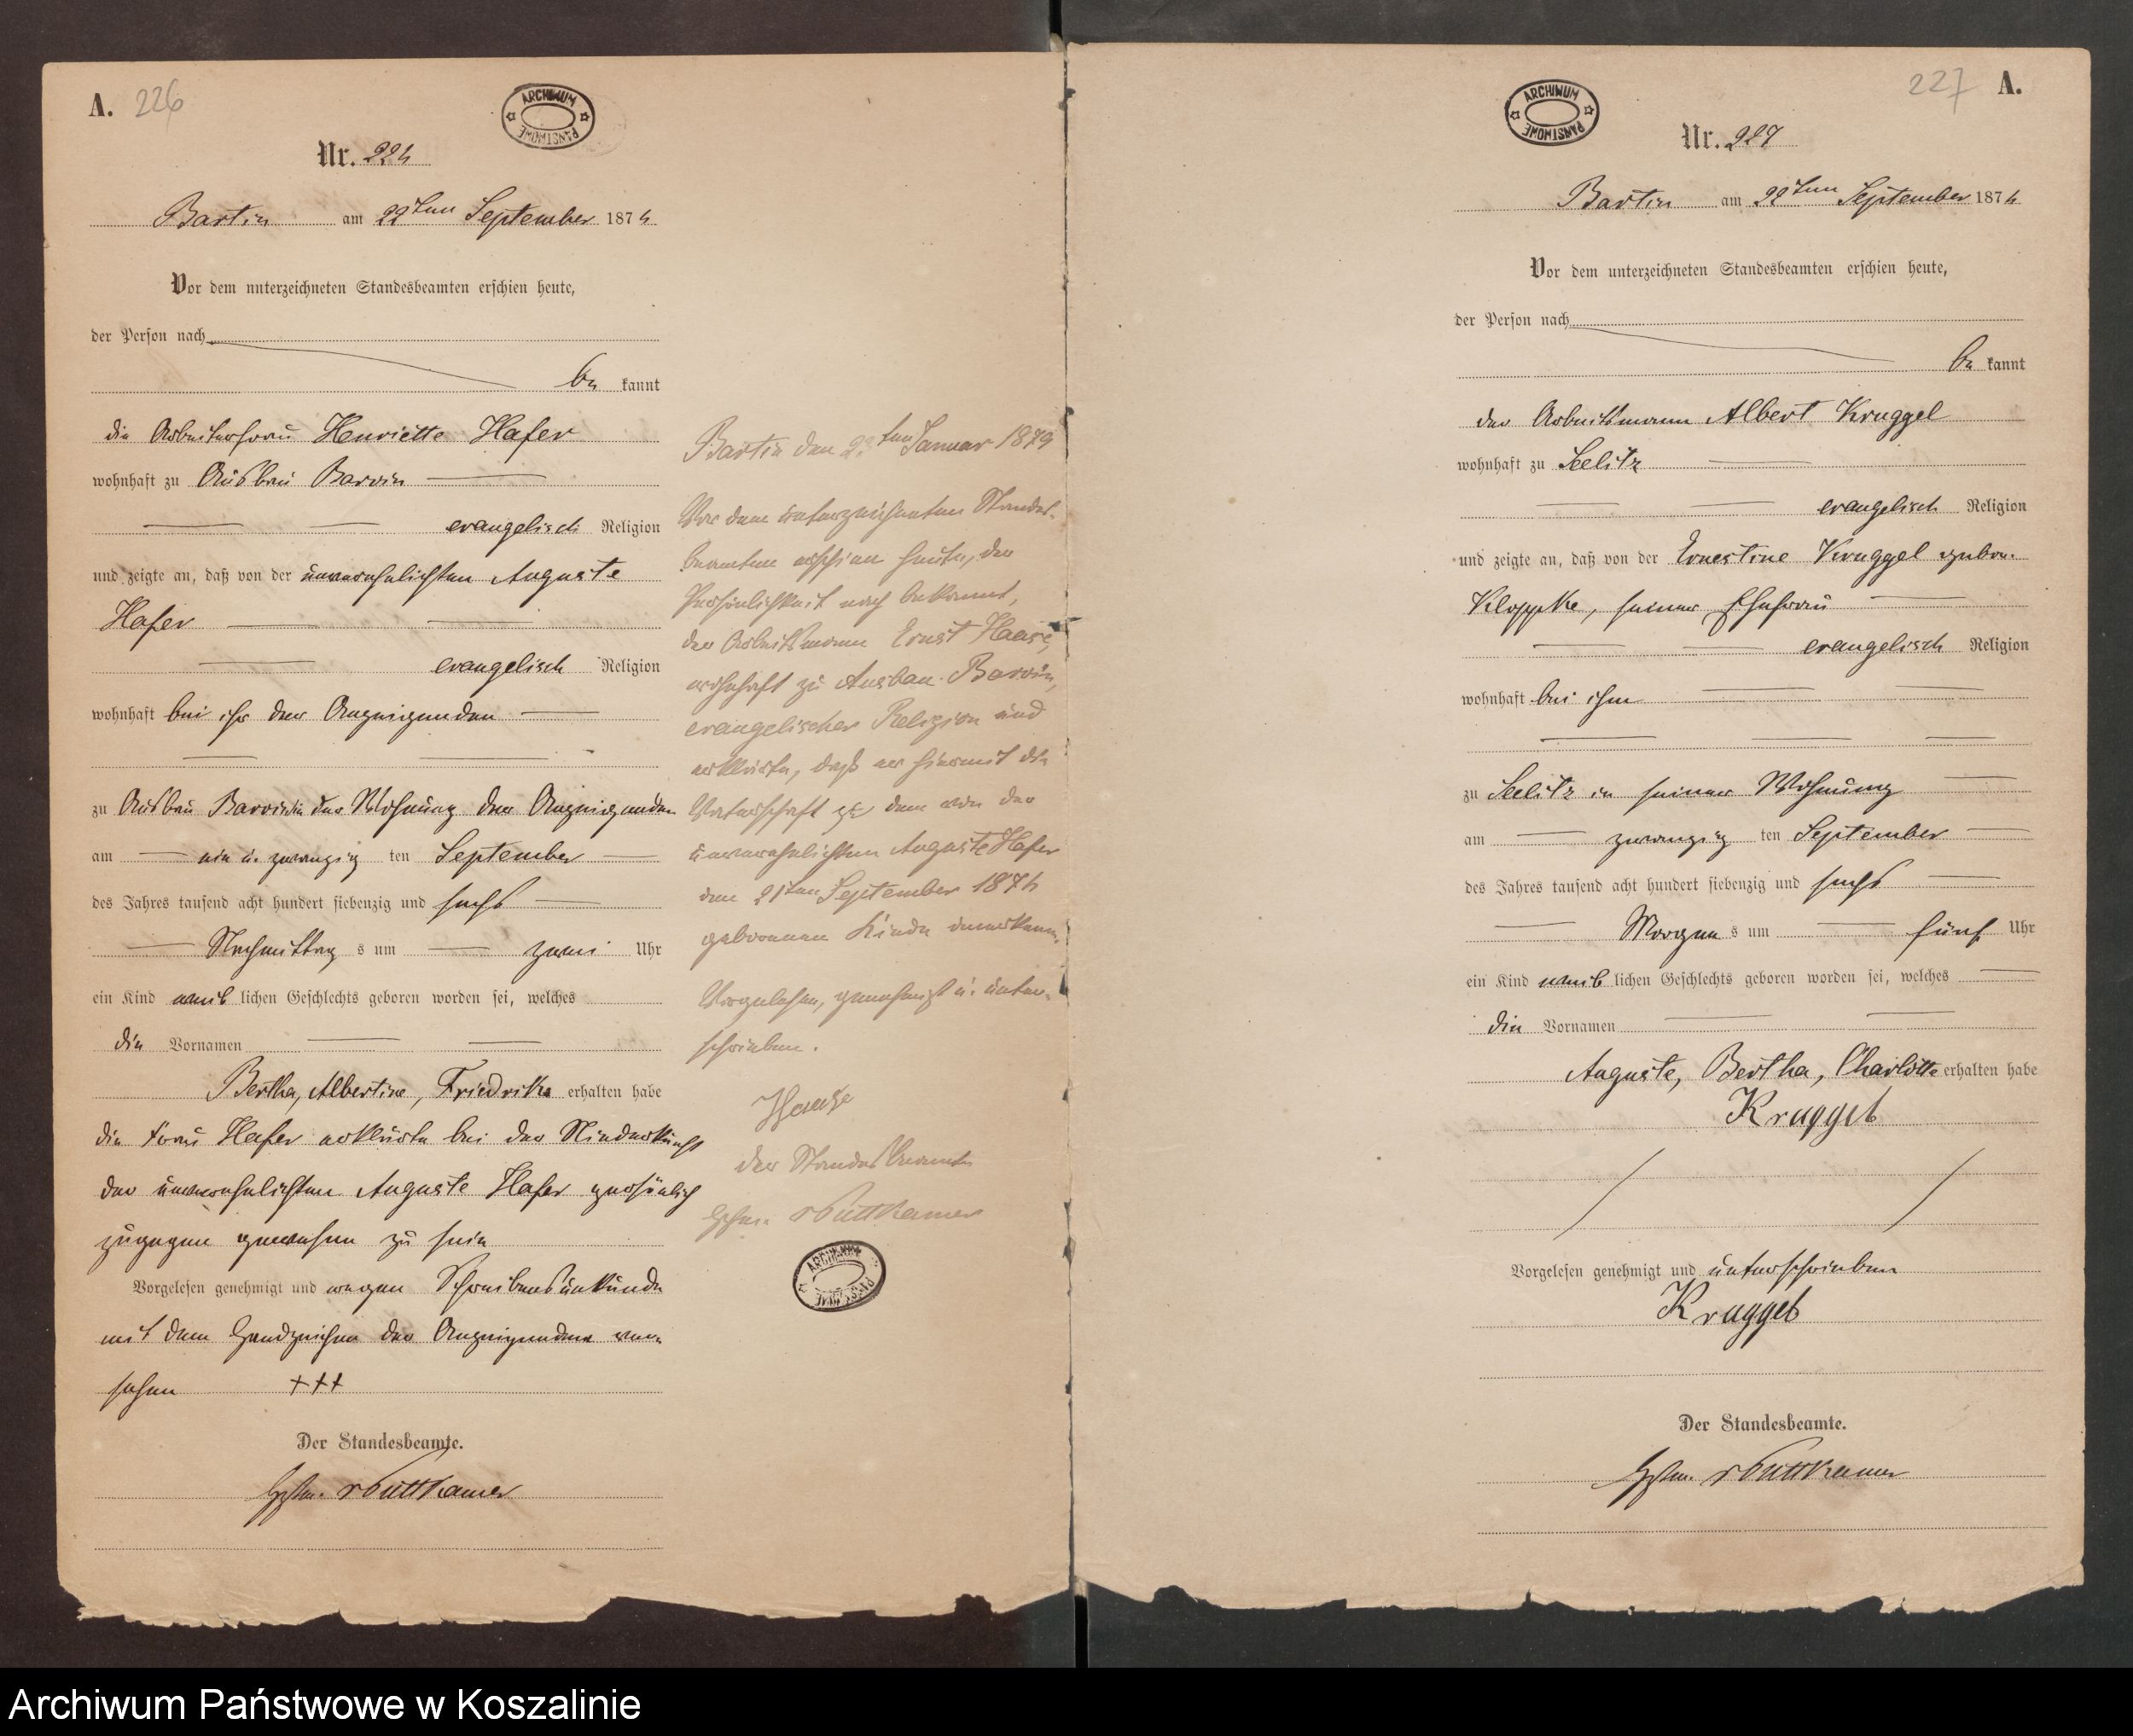 A. 226
ARCHIWUM PAŃSTWOWE
Nr. 226
Bartin am 22ten September 1876
Vor dem unterzeichneten Standesbeamten erschien heute,
der Person nach
be kannt
die Arbeiterfrau Henriette Hafer
wohnhaft zu Ausbau Barvin
evangelisch Religion
und zeigte an, daß von der unverehelichten Auguste
Hafer
evangelisch Religion
wohnhaft bei ihr der Anzeigenden
zu Ausbau Barvin in der Wohnung der Anzeigenden
am ein u. zwanzig ten September
des Jahres tausend acht hundert siebenzig und sechs
Nachmittag s um zwei Uhr
ein Kind weib lichen Geschlechts geboren worden sei, welches
die Vornamen
Bertha, Albertine, Friedrike erhalten habe
die Frau Hafer erklärte bei der Niederkunft
der unverehelichten Auguste Hafer persönlich
zugegen gewesen zu sein
Vorgelesen genehmigt und wegen Schreibensunkunde
mit dem Handzeichen der Anzeigenden ver-
sehen +++
Der Standesbeamte.
v Puttkamer
Bartin den ten Januar 1879
Vor dem unterzeichneten Standes-
beamten erschien heute, der
Persönlichkeit nach bekannt,
der Arbeitsmann Ernst Haase,
wohnhaft zu Ausbau Barvin,
evangelischer Religion und
erklärte, daß er hiermit die
Vaterschaft zu dem von der
unverehelichten Auguste Hafer
den 21ten September 1876
geborenen Kinde anerkenne.
Vorgelesen, genehmigt u. unter-
schrieben.
Haase
der Standesbeamte
v Puttkamer
ARCHIWUM PAŃSTWOWE
227 A.
ARCHIWUM PAŃSTWOWE
Nr. 227
Bartin am 22ten September 1876
Vor dem unterzeichneten Standesbeamten erschien heute,
der Person nach
be kannt
der Arbeitsmann Albert Kruggel
wohnhaft zu Seelitz
evangelisch Religion
und zeigte an, daß von der Ernestine Kruggel gebor.
Kloppke, seiner Ehefrau
evangelisch Religion
wohnhaft bei ihm
zu Seelitz in seiner Wohnung
am zwanzig ten September
des Jahres tausend acht hundert siebenzig und sechs
Morgen s um fünf Uhr
ein Kind weib lichen Geschlechts geboren worden sei, welches
die Vornamen
Auguste, Bertha, Charlotte erhalten habe
Kruggel
Vorgelesen genehmigt und unterschrieben
Kruggel
Der Standesbeamte.
v Puttkamer
Archiwum Państwowe w Koszalinie